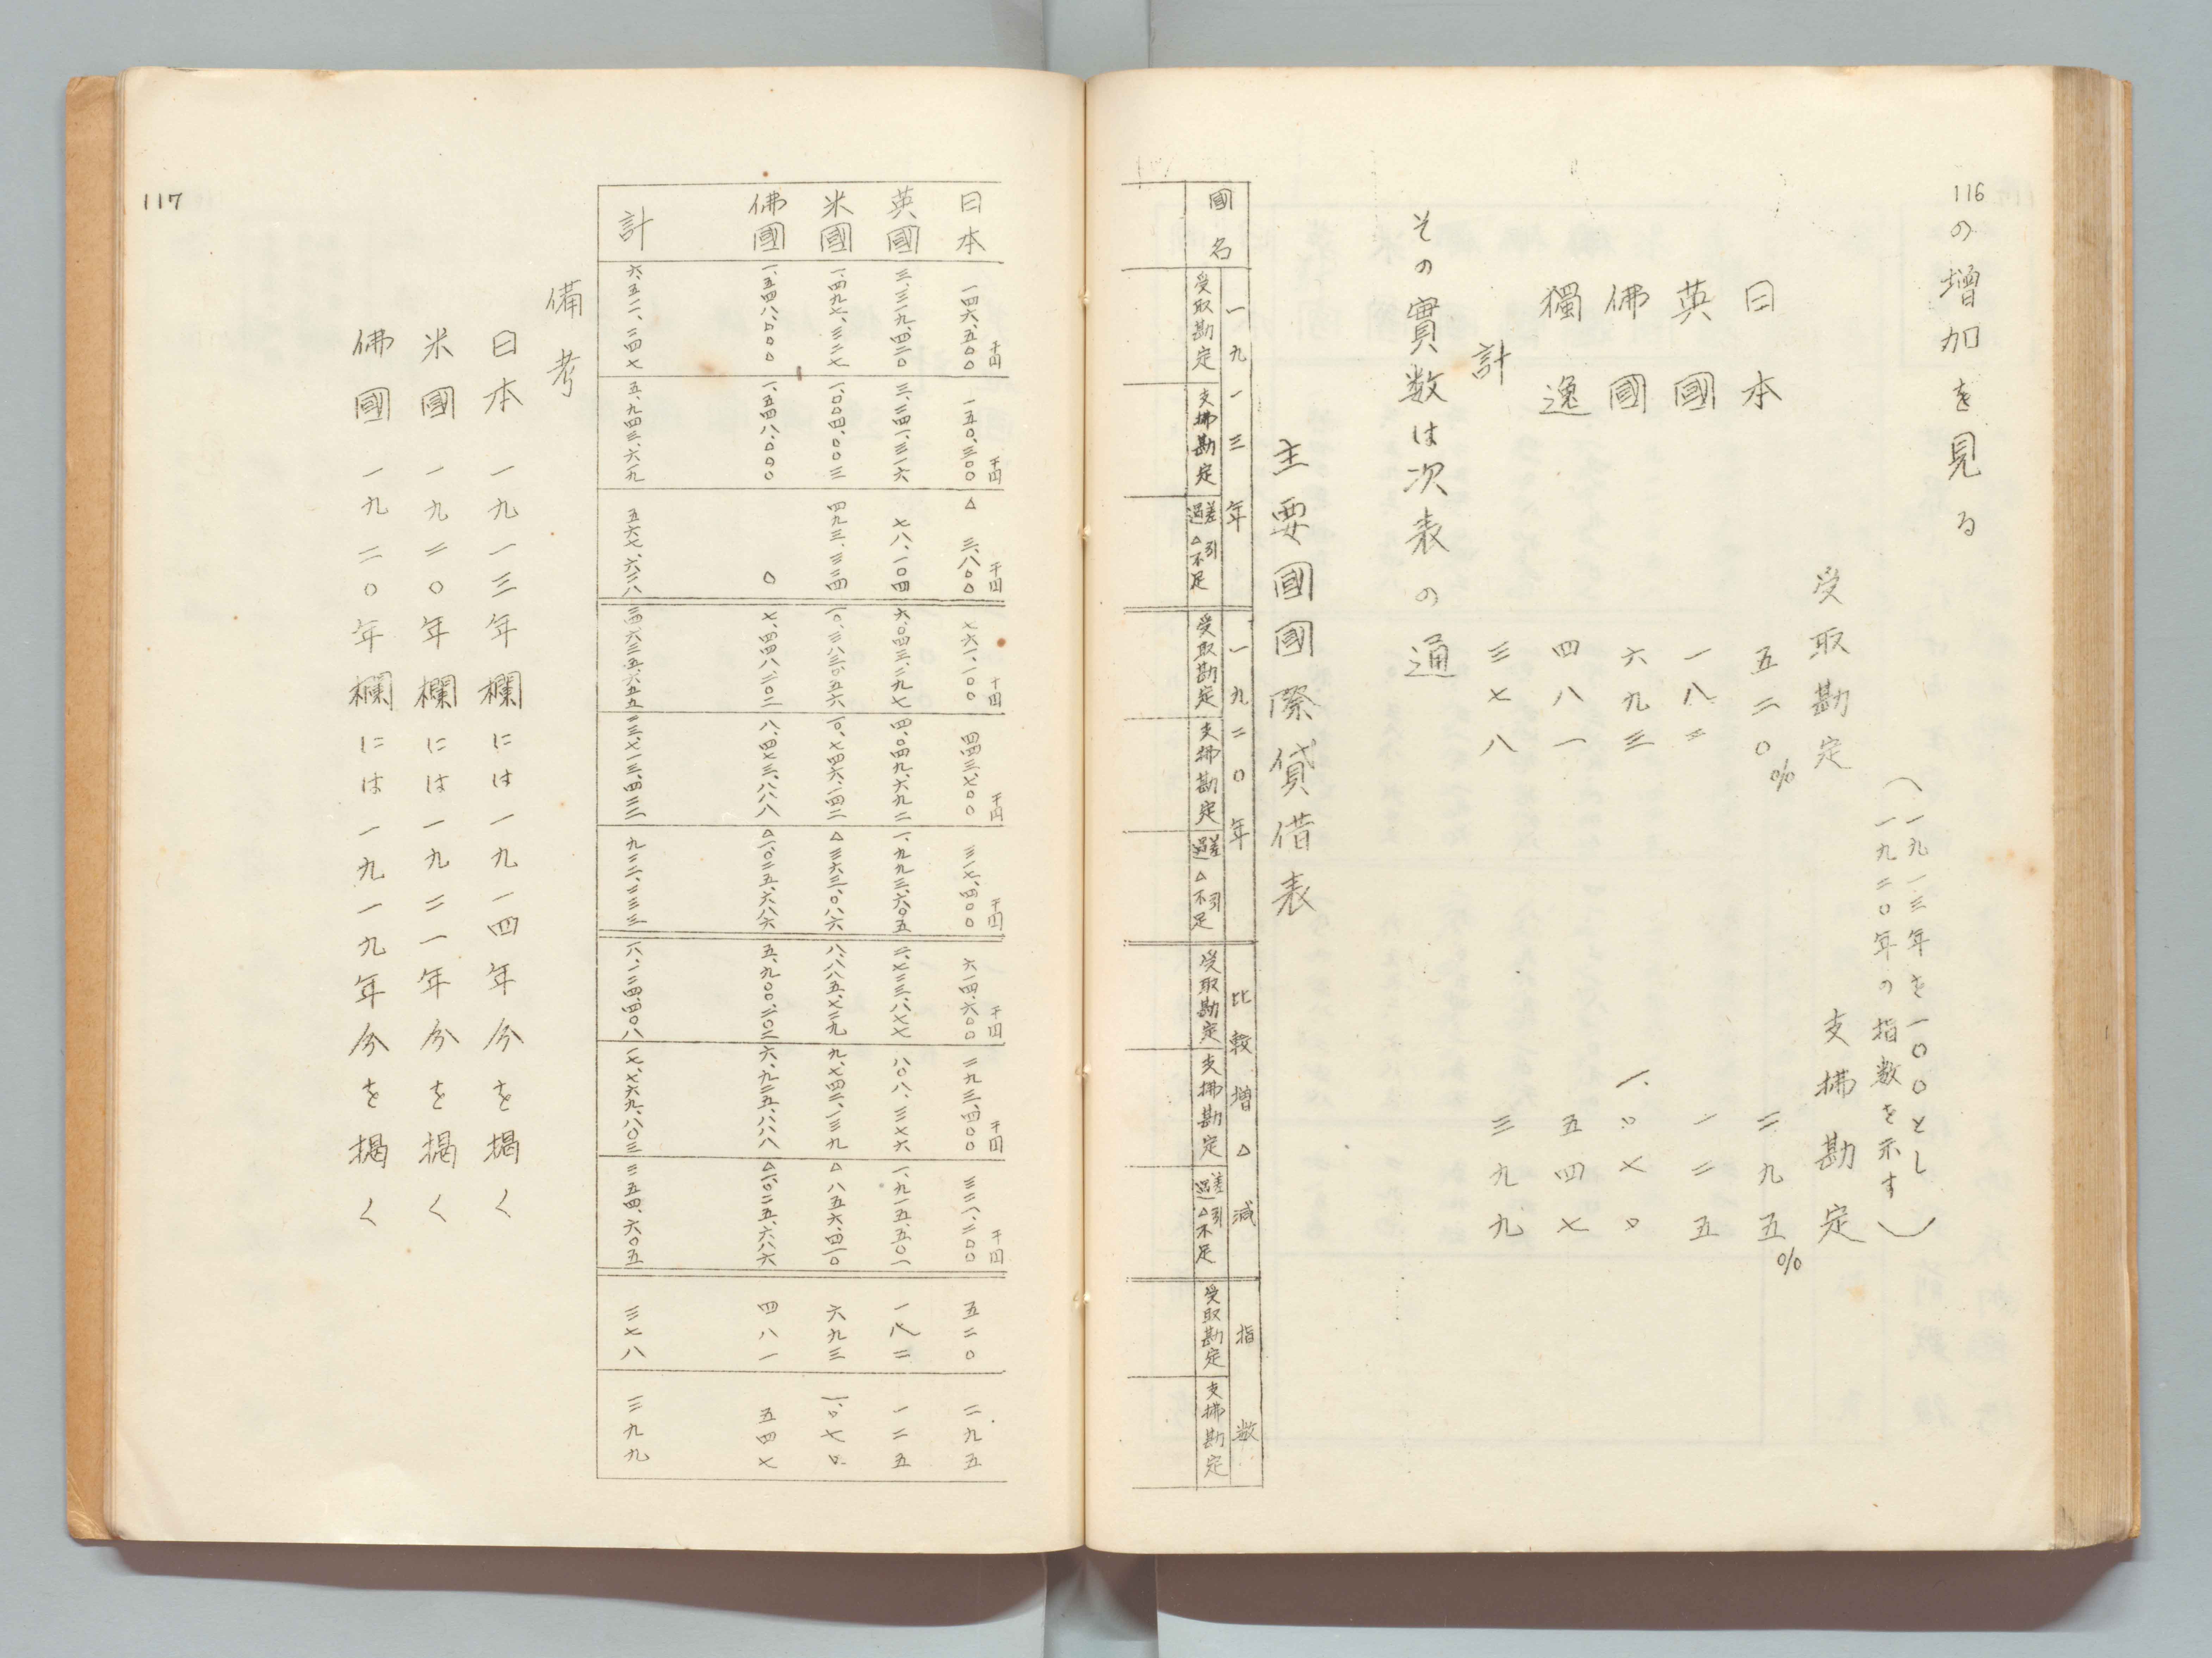 116
の増加を見る
（一九一三年を一〇〇とし
一九二〇年の指数を示す）
受取勘定　支拂勘定
日本　五二〇%　二九五%
英國　一八二　一二五
佛國　六九三　一、〇七〇
獨逸　四八一　五四七
計　三七八　三九九
その實数は次表の通
主要國國際貸借表
國名　一九一三年　一九二〇年　比較増△減　指数
受取勘定　支拂勘定　差引過△不足　受取勘定　支拂勘定　差引過△不足　受取勘定　支拂勘定　差引過△不足　受取勘定　支拂勘定
千円　千円　千円　千円　千円　千円　千円　千円　千円
日本　一四六、五〇〇　一五〇、三〇〇　△三、八〇〇　七六一、一〇〇　四四三、七〇〇　三一七、四〇〇　六一四、六〇〇　二九三、四〇〇　三二一、二〇〇　五二〇　二九五
英國　三、三一九、四二〇　三、二四一、三一六　七八、一〇四　六、〇四三、二九七　四、〇四九、六九二　一、九九三、六〇五　二、七二三、八七七　八〇八、三七六　一、九一五、五〇一　一八二　一二五
米國　一、四九七、三二七　一、〇〇四、〇〇三　四九三、三二四　一〇、三八三、〇五六　一〇、七四六、一四二　△三六三、〇八六　八、八八五、七二九　九、七四二、一三九　△八五六、四一〇　六九三　一、〇七〇
佛國　一、五四八、〇〇〇　一、五四八、〇〇〇　〇　七、四四八、二〇二　八、四七三、八八八　△一、〇二五、六八六　五、九〇〇、二〇二　六、九二五、八八八　△一、〇二五、六八六　四八一　五四七
計　六、五一一、二四七　五、九四三、六一九　五六七、六二八　二四、六三五、六五五　二三、七一三、四二二　九二二、二三三　一八、一二四、四〇八　一七、七六九、八〇三　三五四、六〇五　三七八　三九九
備考
日本　一九一三年欄には一九一四年分を掲く
米國　一九二〇年欄には一九二一年分を掲く
佛國　一九二〇年欄には一九一九年分を掲く
117